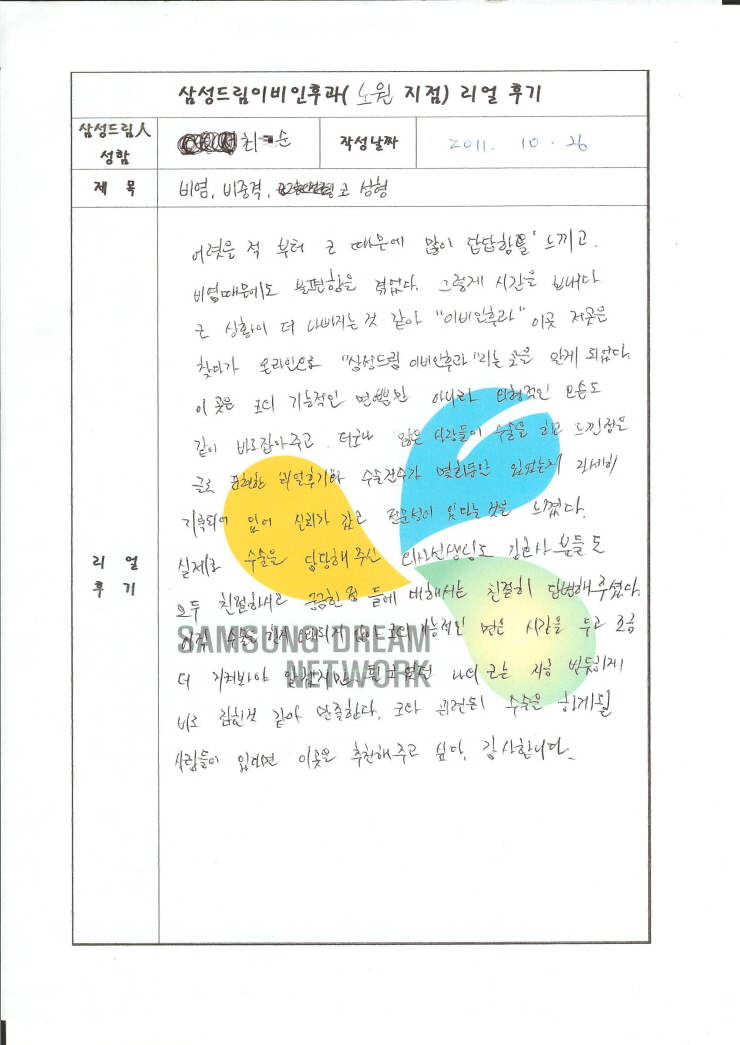 삼성드림이비인후과( 노원 지점) 리얼 후기
삼성드림人
성함
최 순
작성날짜
2011. 10. 26
제 목
비염, 비중격, 코 성형
리 얼
후 기
어렸을 적 부터 코 때문에 많이 답답함을 느끼고.
비염때문에도 불편함을 겪었다. 그렇게 시간을 보내다.
코 상황이 더 나빠지는 것 같아 "이비인후과" 이곳 저곳을
찾다가 온라인으로 "삼성드림 이비인후과"라는 곳을 알게 되었다.
이 곳은 코의 기능적인 면 뿐만 아니라 외형적인 모습도
같이 바로잡아주고 더구나 많은 사람들이 수술을 하고 느낀점을
글로 표현한 리얼후기와 수술건수가 몇회동안 있었는지 자세히
기록되어 있어 신뢰가 갔고 전문성이 있다는 것을 느꼈다.
실제로 수술을 담당해 주신 의사선생님도 간호사 분들도
모두 친절하시고 궁금한 점 들에 대해서는 친절히 답변해 주셨다.
아직 수술을 한지 얼마되지 않아 코의 기능적인 면은 시간을 두고 조금
더 지켜봐야 알겠지만 휘고 나의 코는 지금 반듯하게
바로 잡힌것 같아 만족한다. 코와 관련된 수술을 하게될
사람들이 있다면 이곳을 추천해주고 싶다. 감사합니다.
SAMSUNG DREAM
NETWORK